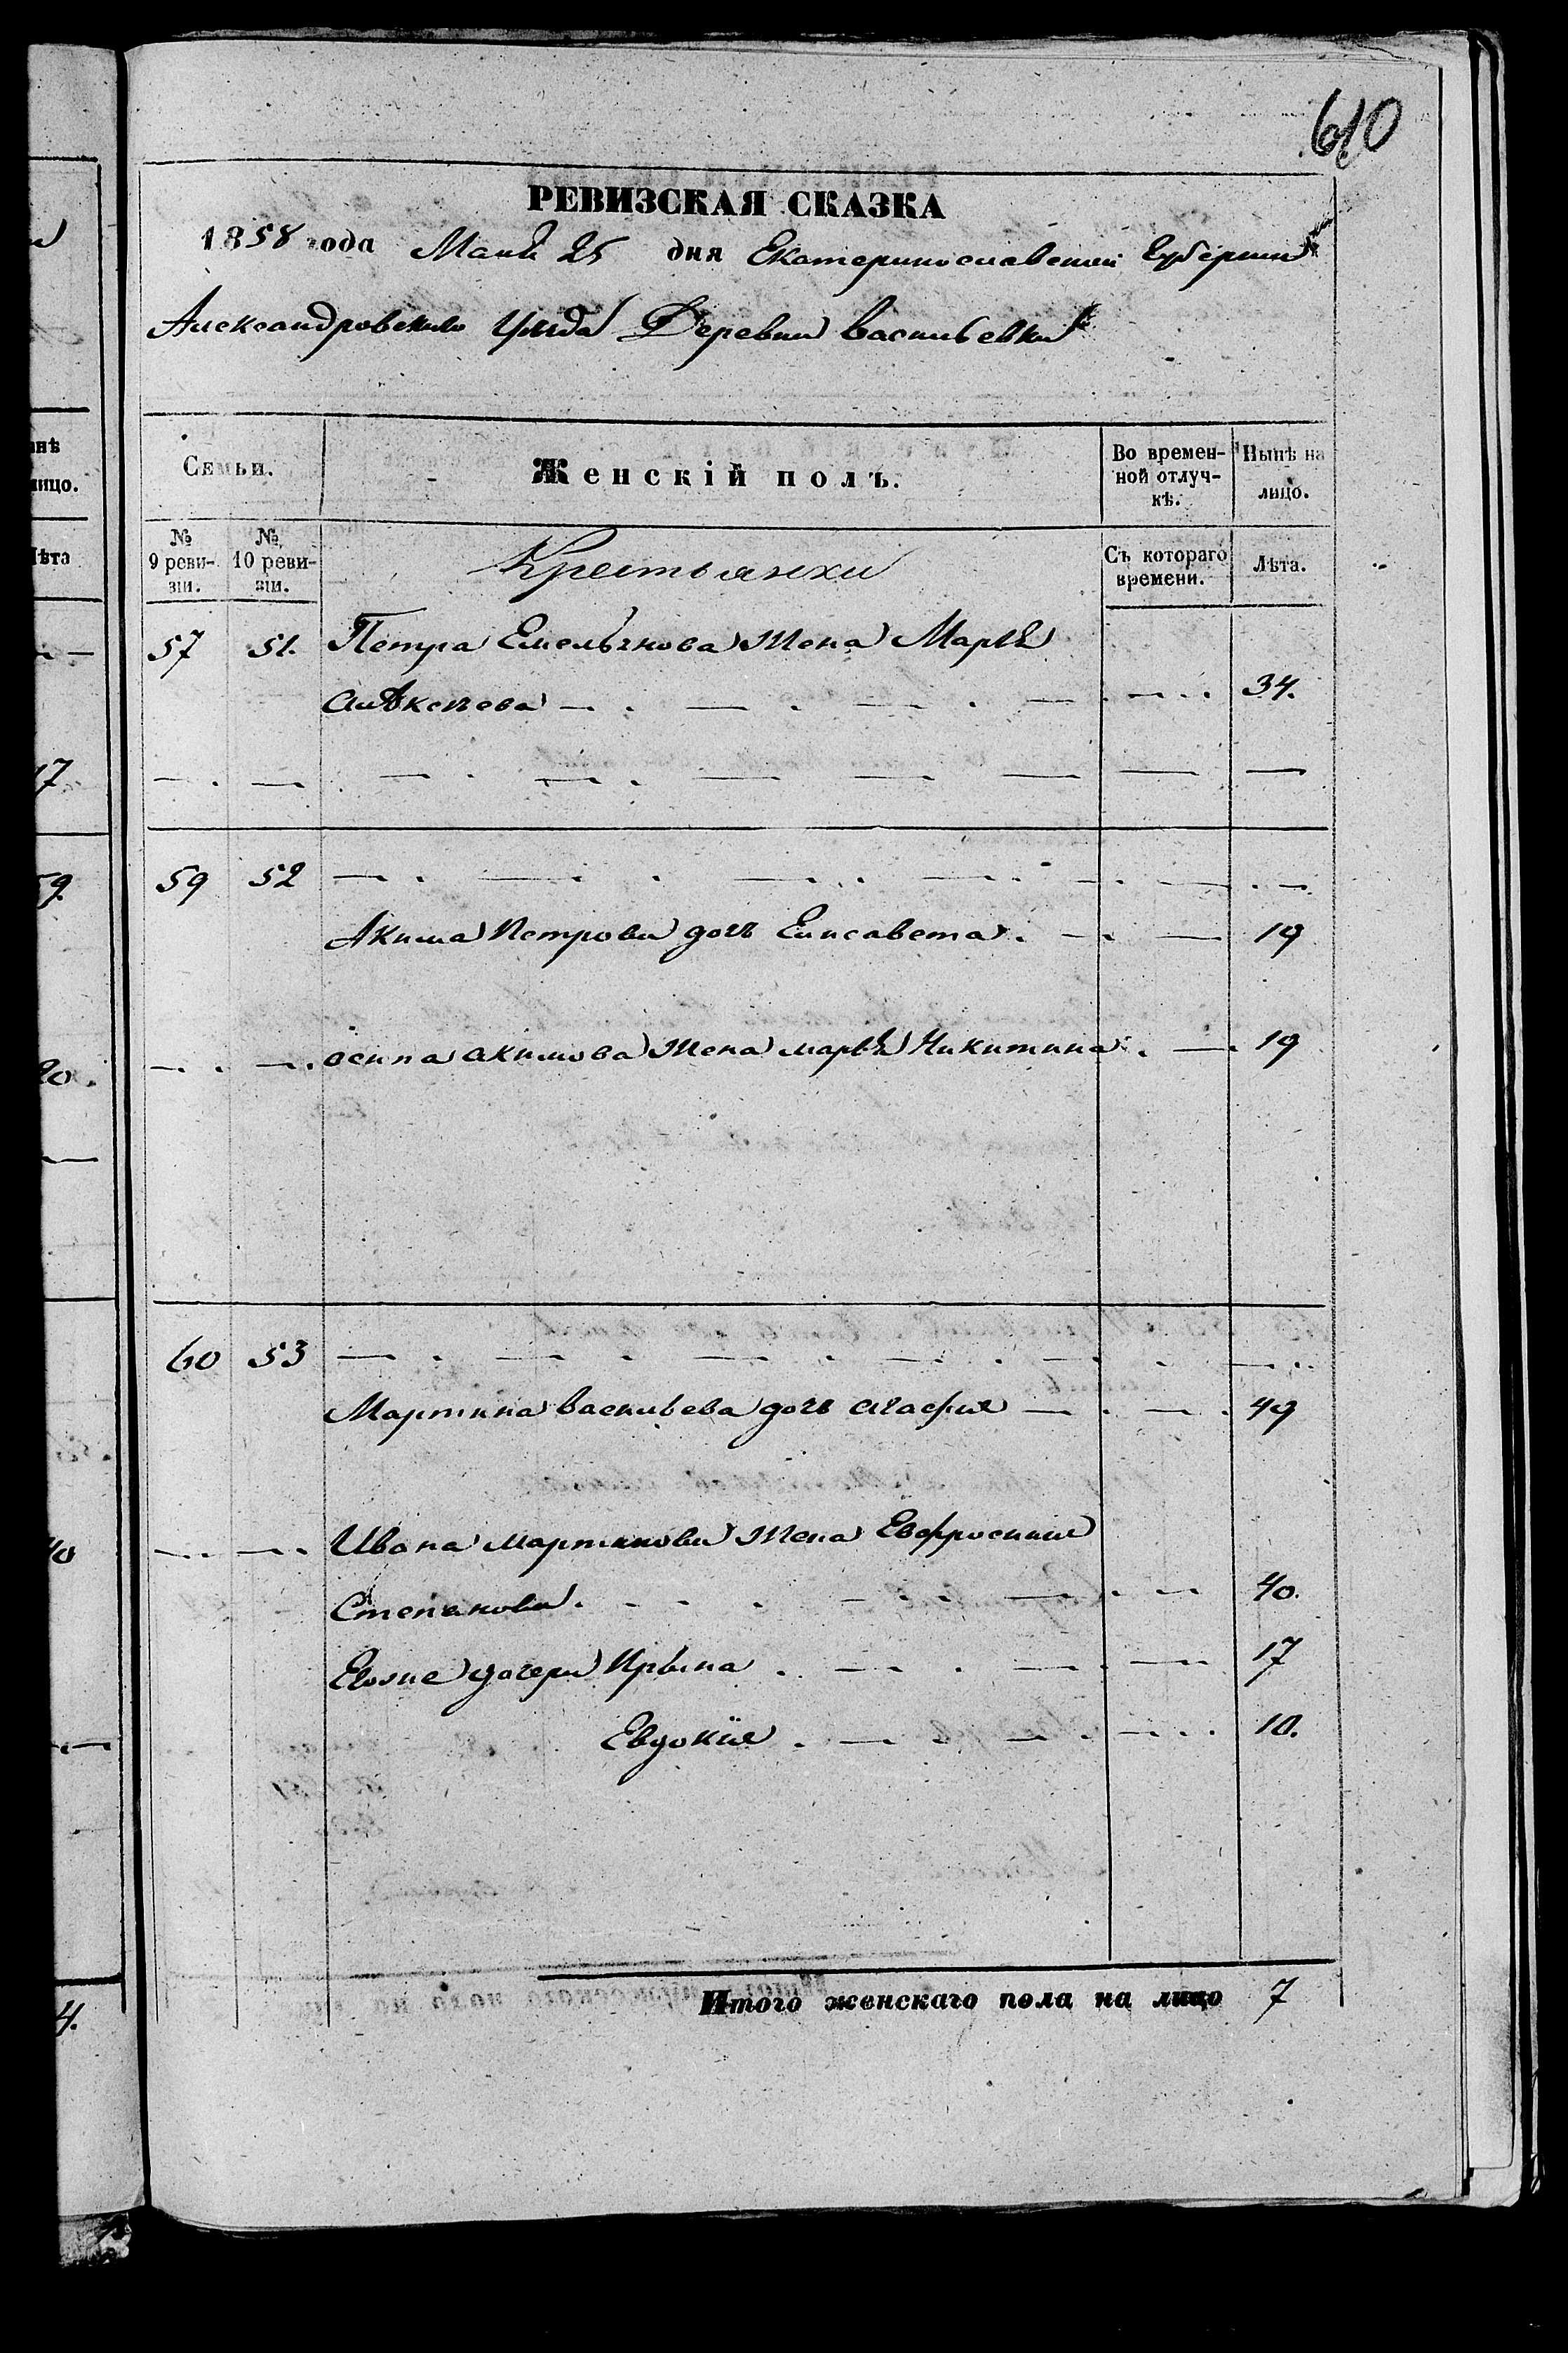 610
РЕВИЗСКАЯ СКАЗКА
1858 года Маия 25 дня Екатеринославской Губернии
Александровскаго Уезда Деревни Васильевки
Семьи. Женскій полъ. Во временной отлучкѣ. Нынѣ на лицо.
№ 9 ревизіи. № 10 ревизіи. Крестьянки Съ котораго времени. Лѣта.
57 51. Петра Емельянова жена Марья
Алексеева 34.
59 52
Акима Петрова дочь Елисавета 19
осипа акимова жена марья Никитина 19
60 53
Мартина васильева дочь агафия 49
Ивана мартинова жена Евфросиния
Степанова 40.
Евоже дочери Ирына 17
Евдокия 10.
Итого женскаго пола на лицо 7